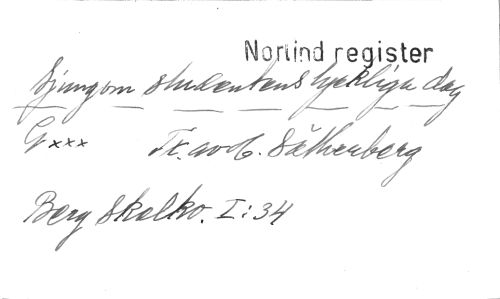 Norlind register
Sjungom studentens lyckliga dag
G xxx Tr. av H. Sätherberg
Berg Skolkv. I:34